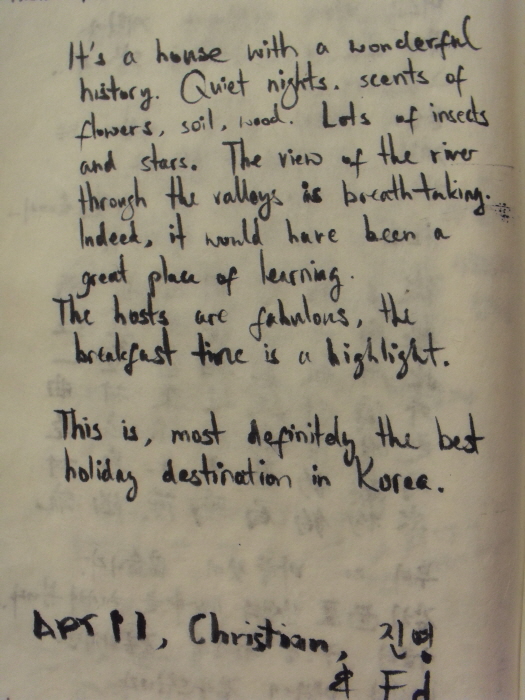 It's a house with a wonderful
history. Quiet nights. scents of
flowers, soil, wood. Lots of insects
and stars. The view of the river
through the valleys is breath-taking.
Indeed, it would have been a
great place of learning.
The hosts are fabulous, the
breakfast time is a highlight.
This is, most definitely the best
holiday destination in Korea.
, Christian, 진영
& Ed